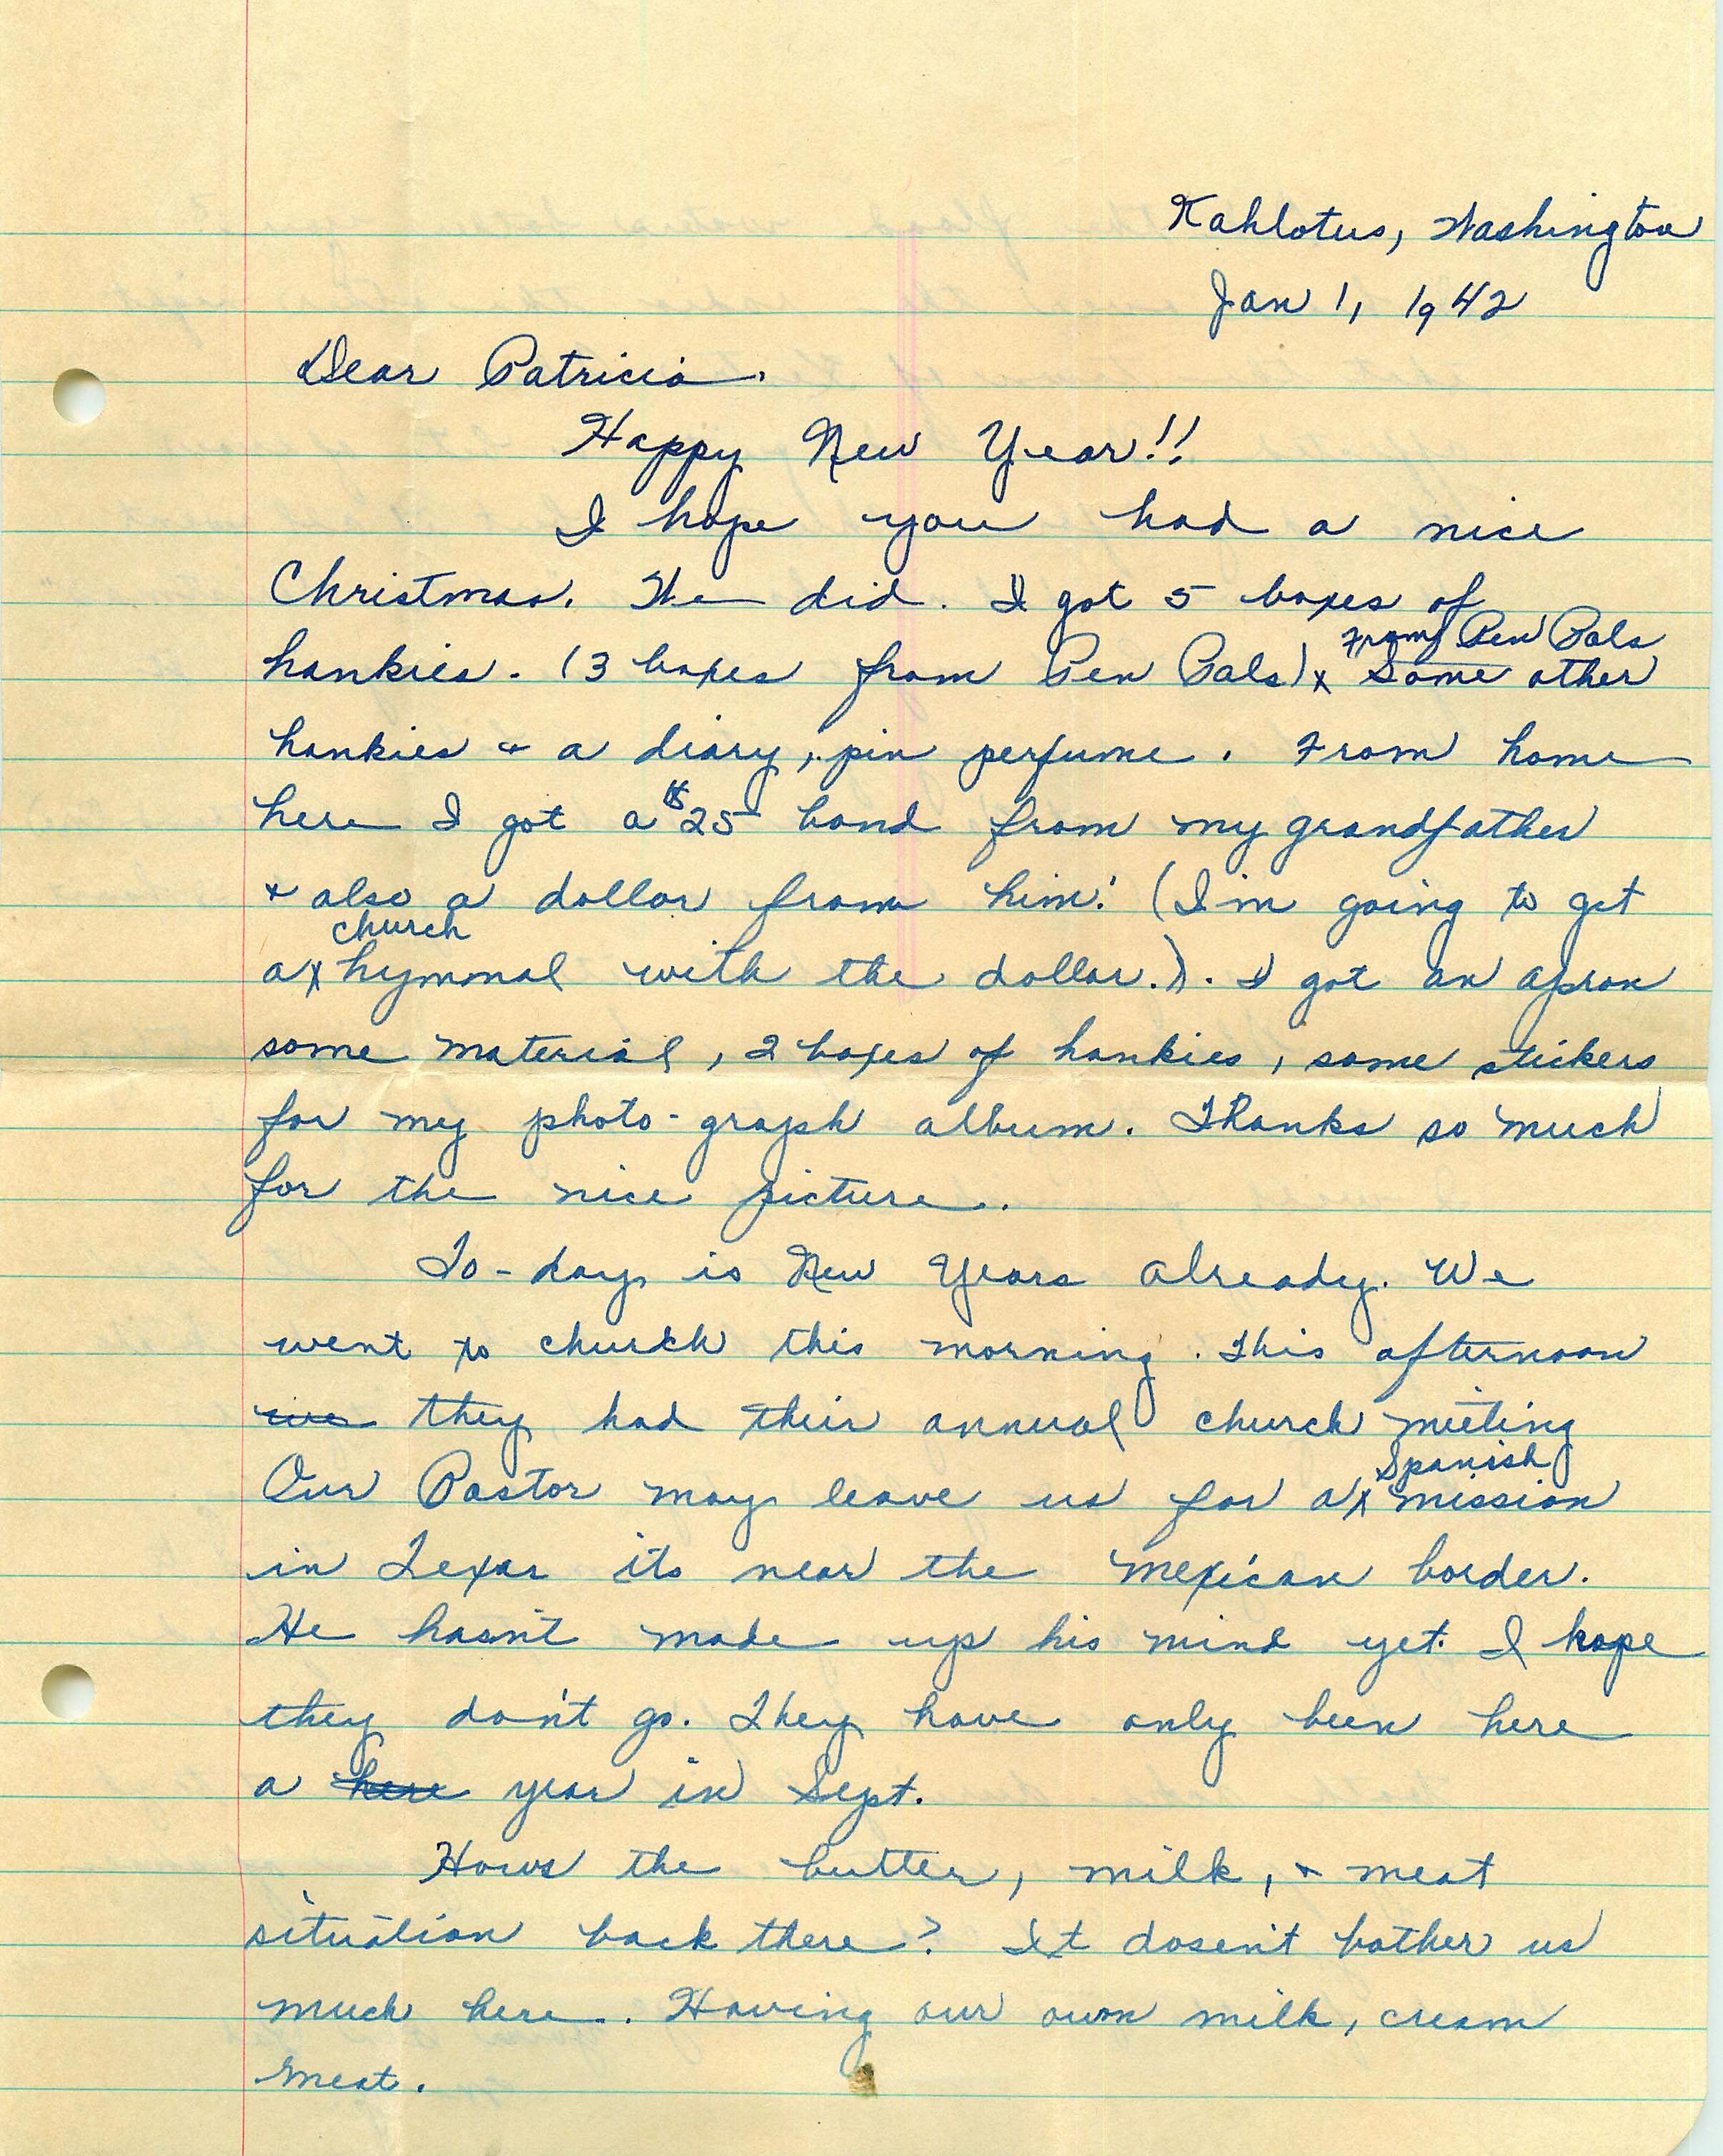 Kahlotus, Washington
Jan 1, 1942
Dear Patricia.
Happy New Year!!
I hope you had a nice
Christmas. We did. I got 5 boxes of
From Pen Pals
hankies. (3 boxes from Pen Pals) x Some other
hankies & a diary, pin perfume. From home
here I got a $25 bond from my grandfather
& also a dollar from him! (I'm going to get
church
a x hymnal with the dollar.). I got an apron
some material, 2 boxes of hankies, some stickers
for my photo-graph album. Thanks so much
for the nice picture.
To-day is New Years already. We
went to church this morning. This afternoon
they had their annual church meeting
Spanish
Our Pastor may leave us for a x mission
in Texas its near the Mexican border.
He hasn't made up his mind yet. I hope
they don't go. They have only been here
a here year in Sept.
Hows the butter, milk, & meat
situation back there? It dosen't bother us
much here.. Having our own milk, cream
meat.